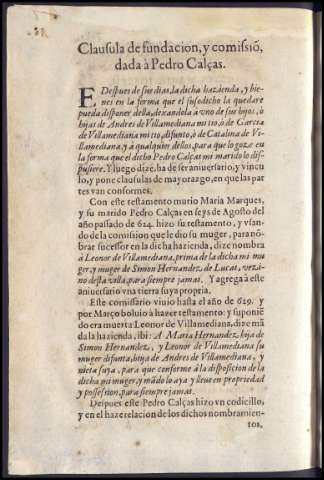 Clausula de fundacion, y comissiõ,
dada à Pedro Calças.
E Despues de sus dias, la dicha hazienda, y bie-
nes en la forma que el susodicho la quedare
pueda disponer della, dexandola à vno de sus hijos, ò
hijas de Andres de Villamediana mi tio, ò de Garcia
de Villamediana mi tio, difunto, ò de Catalina de Vi-
llamediana, y à qualquier dellos, para que lo goze en
la forma que el dicho Pedro Calças mi marido lo dis-
pusiere. Y luego dize, ha de ser aniversario, y vincu
lo, y pone clausulas de mayorazgo, en que las par
tes van conformes.
Con este testamento murio Maria Marques,
y su marido Pedro Calças en seys de Agosto del
año pasado de 624. hizo su testamento, y vsan-
do de la comission q̃ le dio su muger, para nõ-
brar sucessor en la dicha hazienda, dize nombra
à Leonor de Villamediana, prima de la dicha mi mu
ger, y muger de Simon Hernandez, de Lucas, vezi-
no desta villa, para siempre jamas. Y agrega à este
aniversario vna tierra suya propria.
Este comissario viuio hasta el año de 629. y
por Março boluio à hazer testamento: y suponiẽ
do era muerta Leonor de Villamediana, dize mã
da la hazienda, ibi: A Maria Hernandez, hija de
Simon Hernandez, y Leonor de Villamediana su
muger difunta, hija de Andres de Villamediana, y
nieta suya, para que conforme à la disposicion de la
dicha mi muger, y mãdo lo aya y lleue en propriedad
y possession, para siempre jamas.
Despues este Pedro Calças hizo vn codicillo,
y en el haze relacion de los dichos nombramien-
tos,